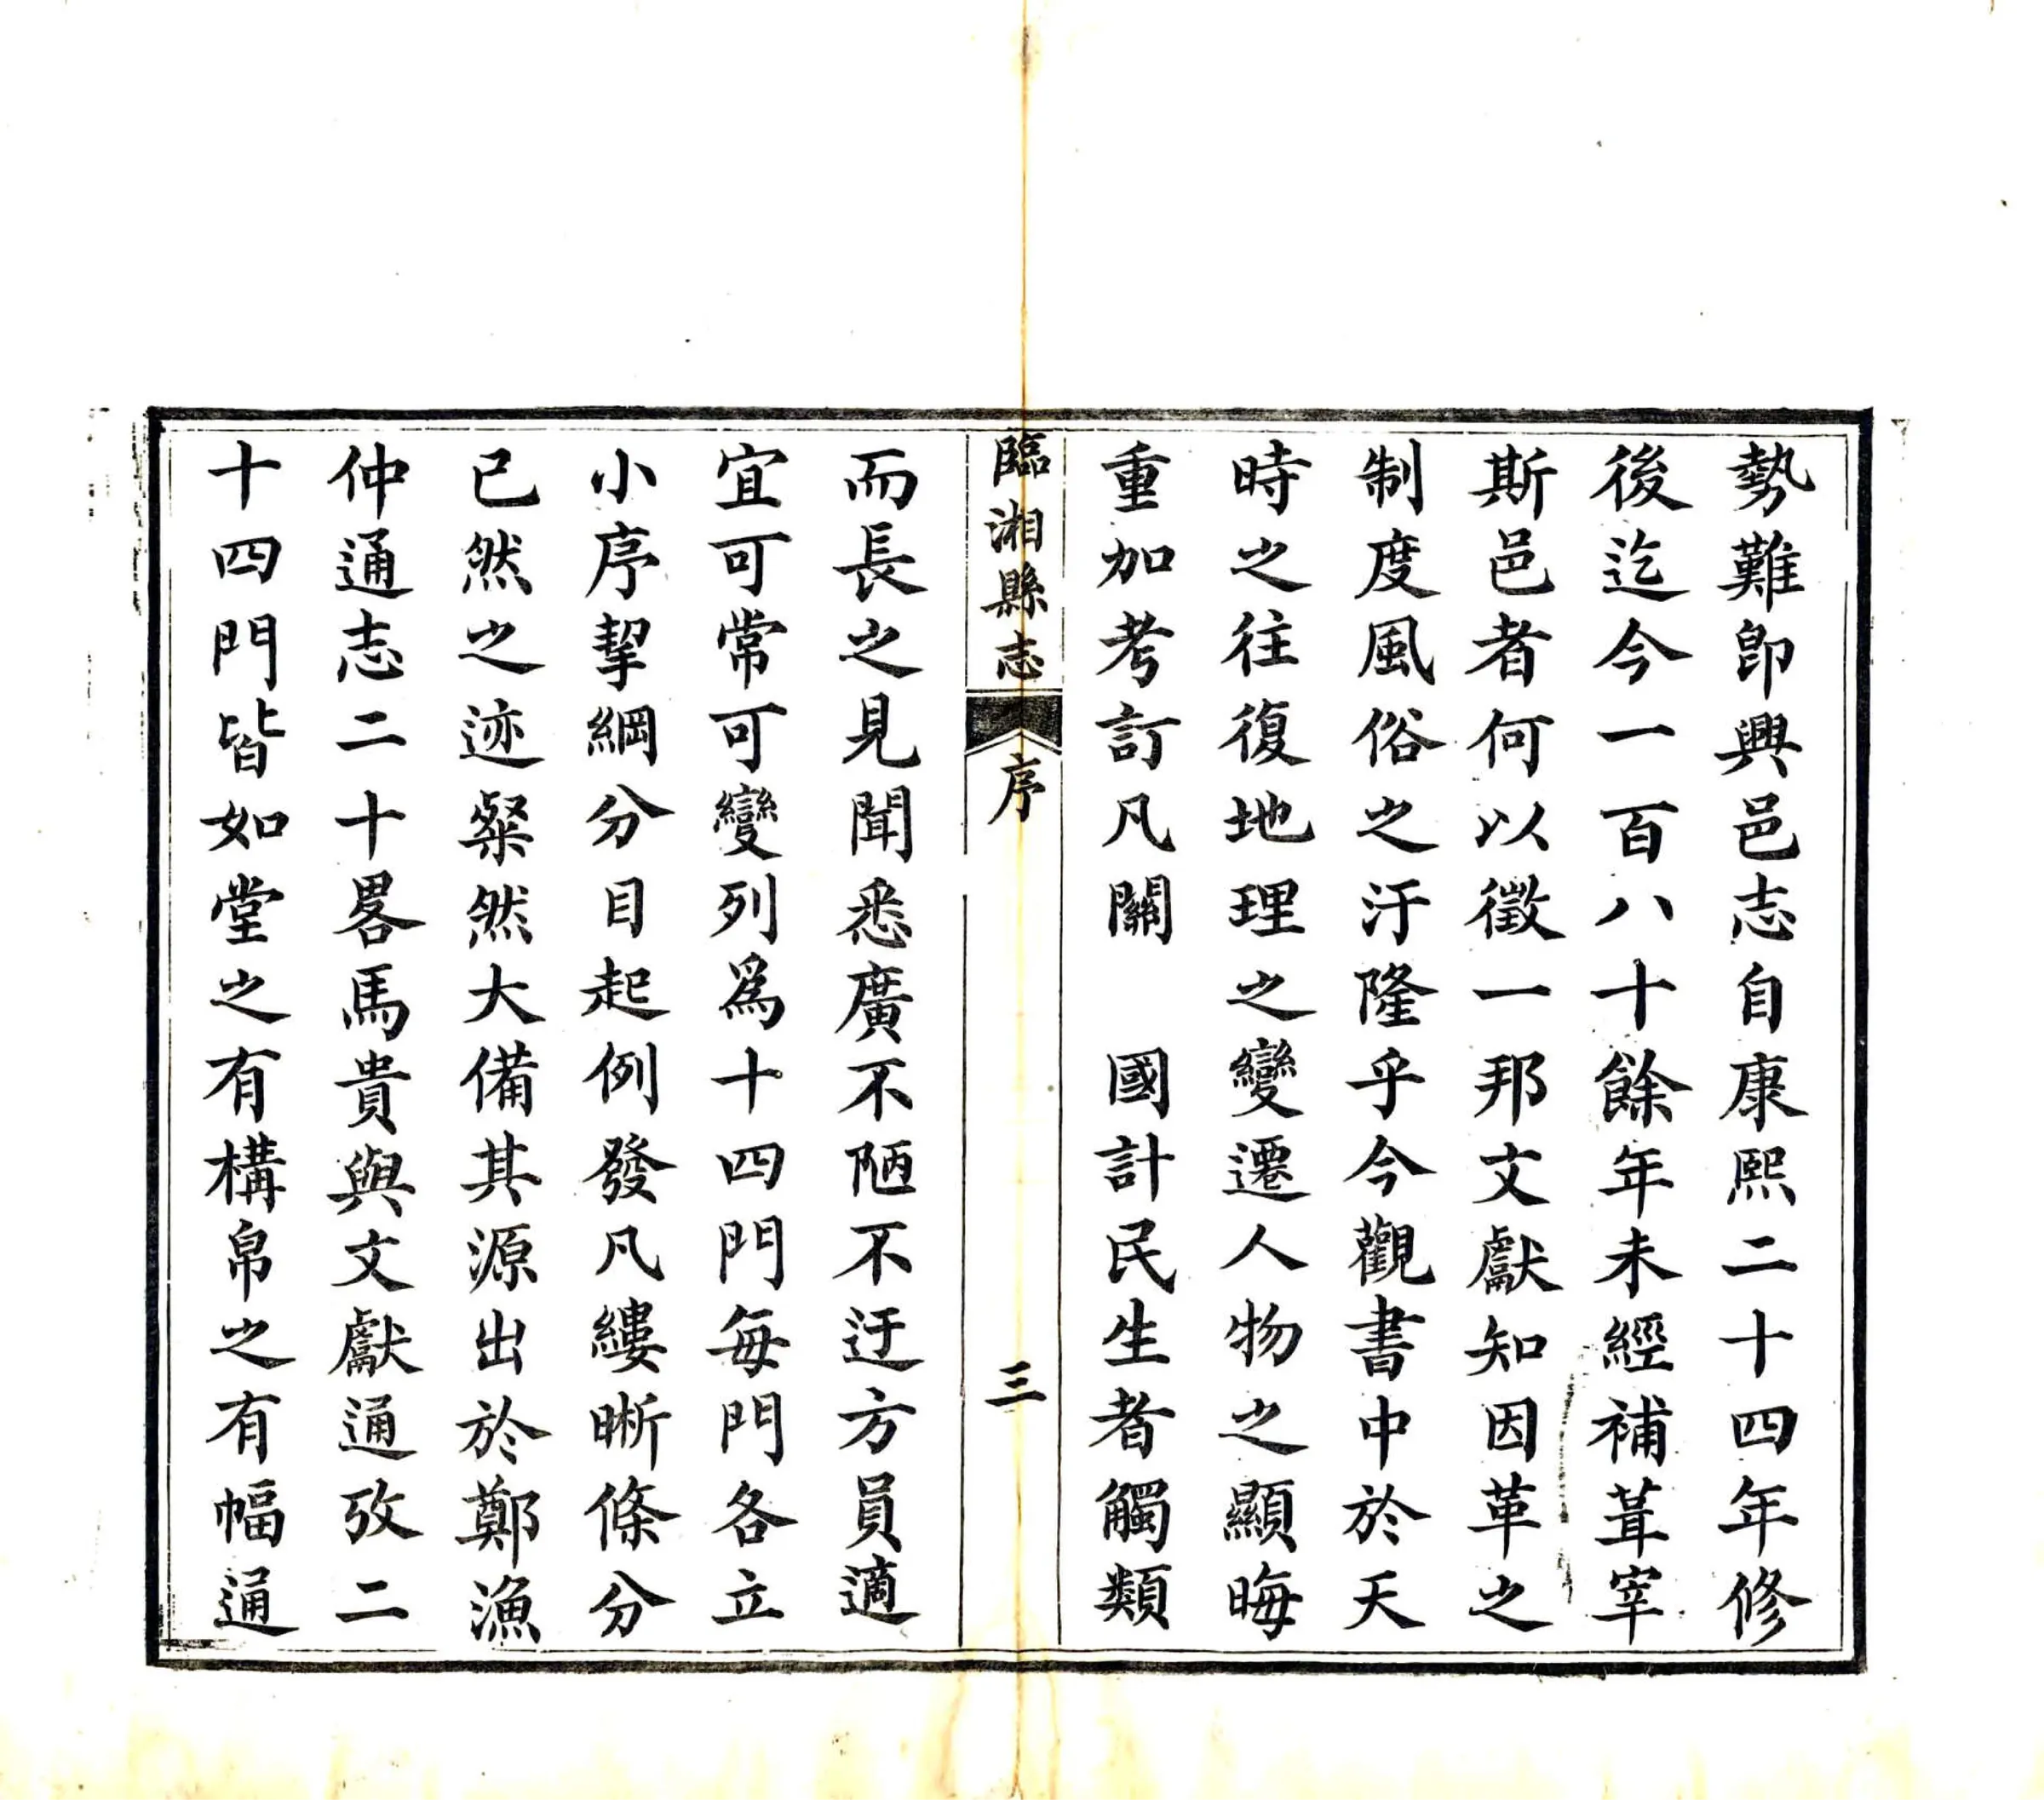 勢難卽興邑志自康熙二十四年修
後迄今一百八十餘年未經補葺宰
斯邑者何以徵一邦文獻知因革之
制度風俗之汙隆乎今觀書中於天
時之往復地理之變遷人物之顯晦
重加考訂凡關　國計民生者觸類
臨湘縣志　序　三
而長之見聞悉廣不陋不迂方員適
宜可常可變列爲十四門每門各立
小序挈綱分目起例發凡縷晰條分
已然之迹粲然大備其源出於鄭漁
仲通志二十畧馬貴與文獻通攷二
十四門皆如堂之有構帛之有幅通